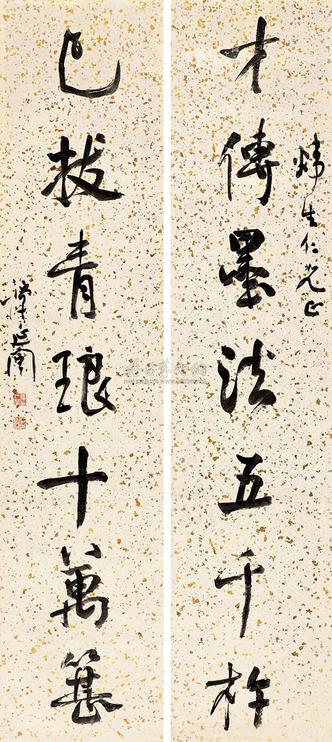 煒生仁兄正
才傳墨法五千杵
已拔青琅十萬